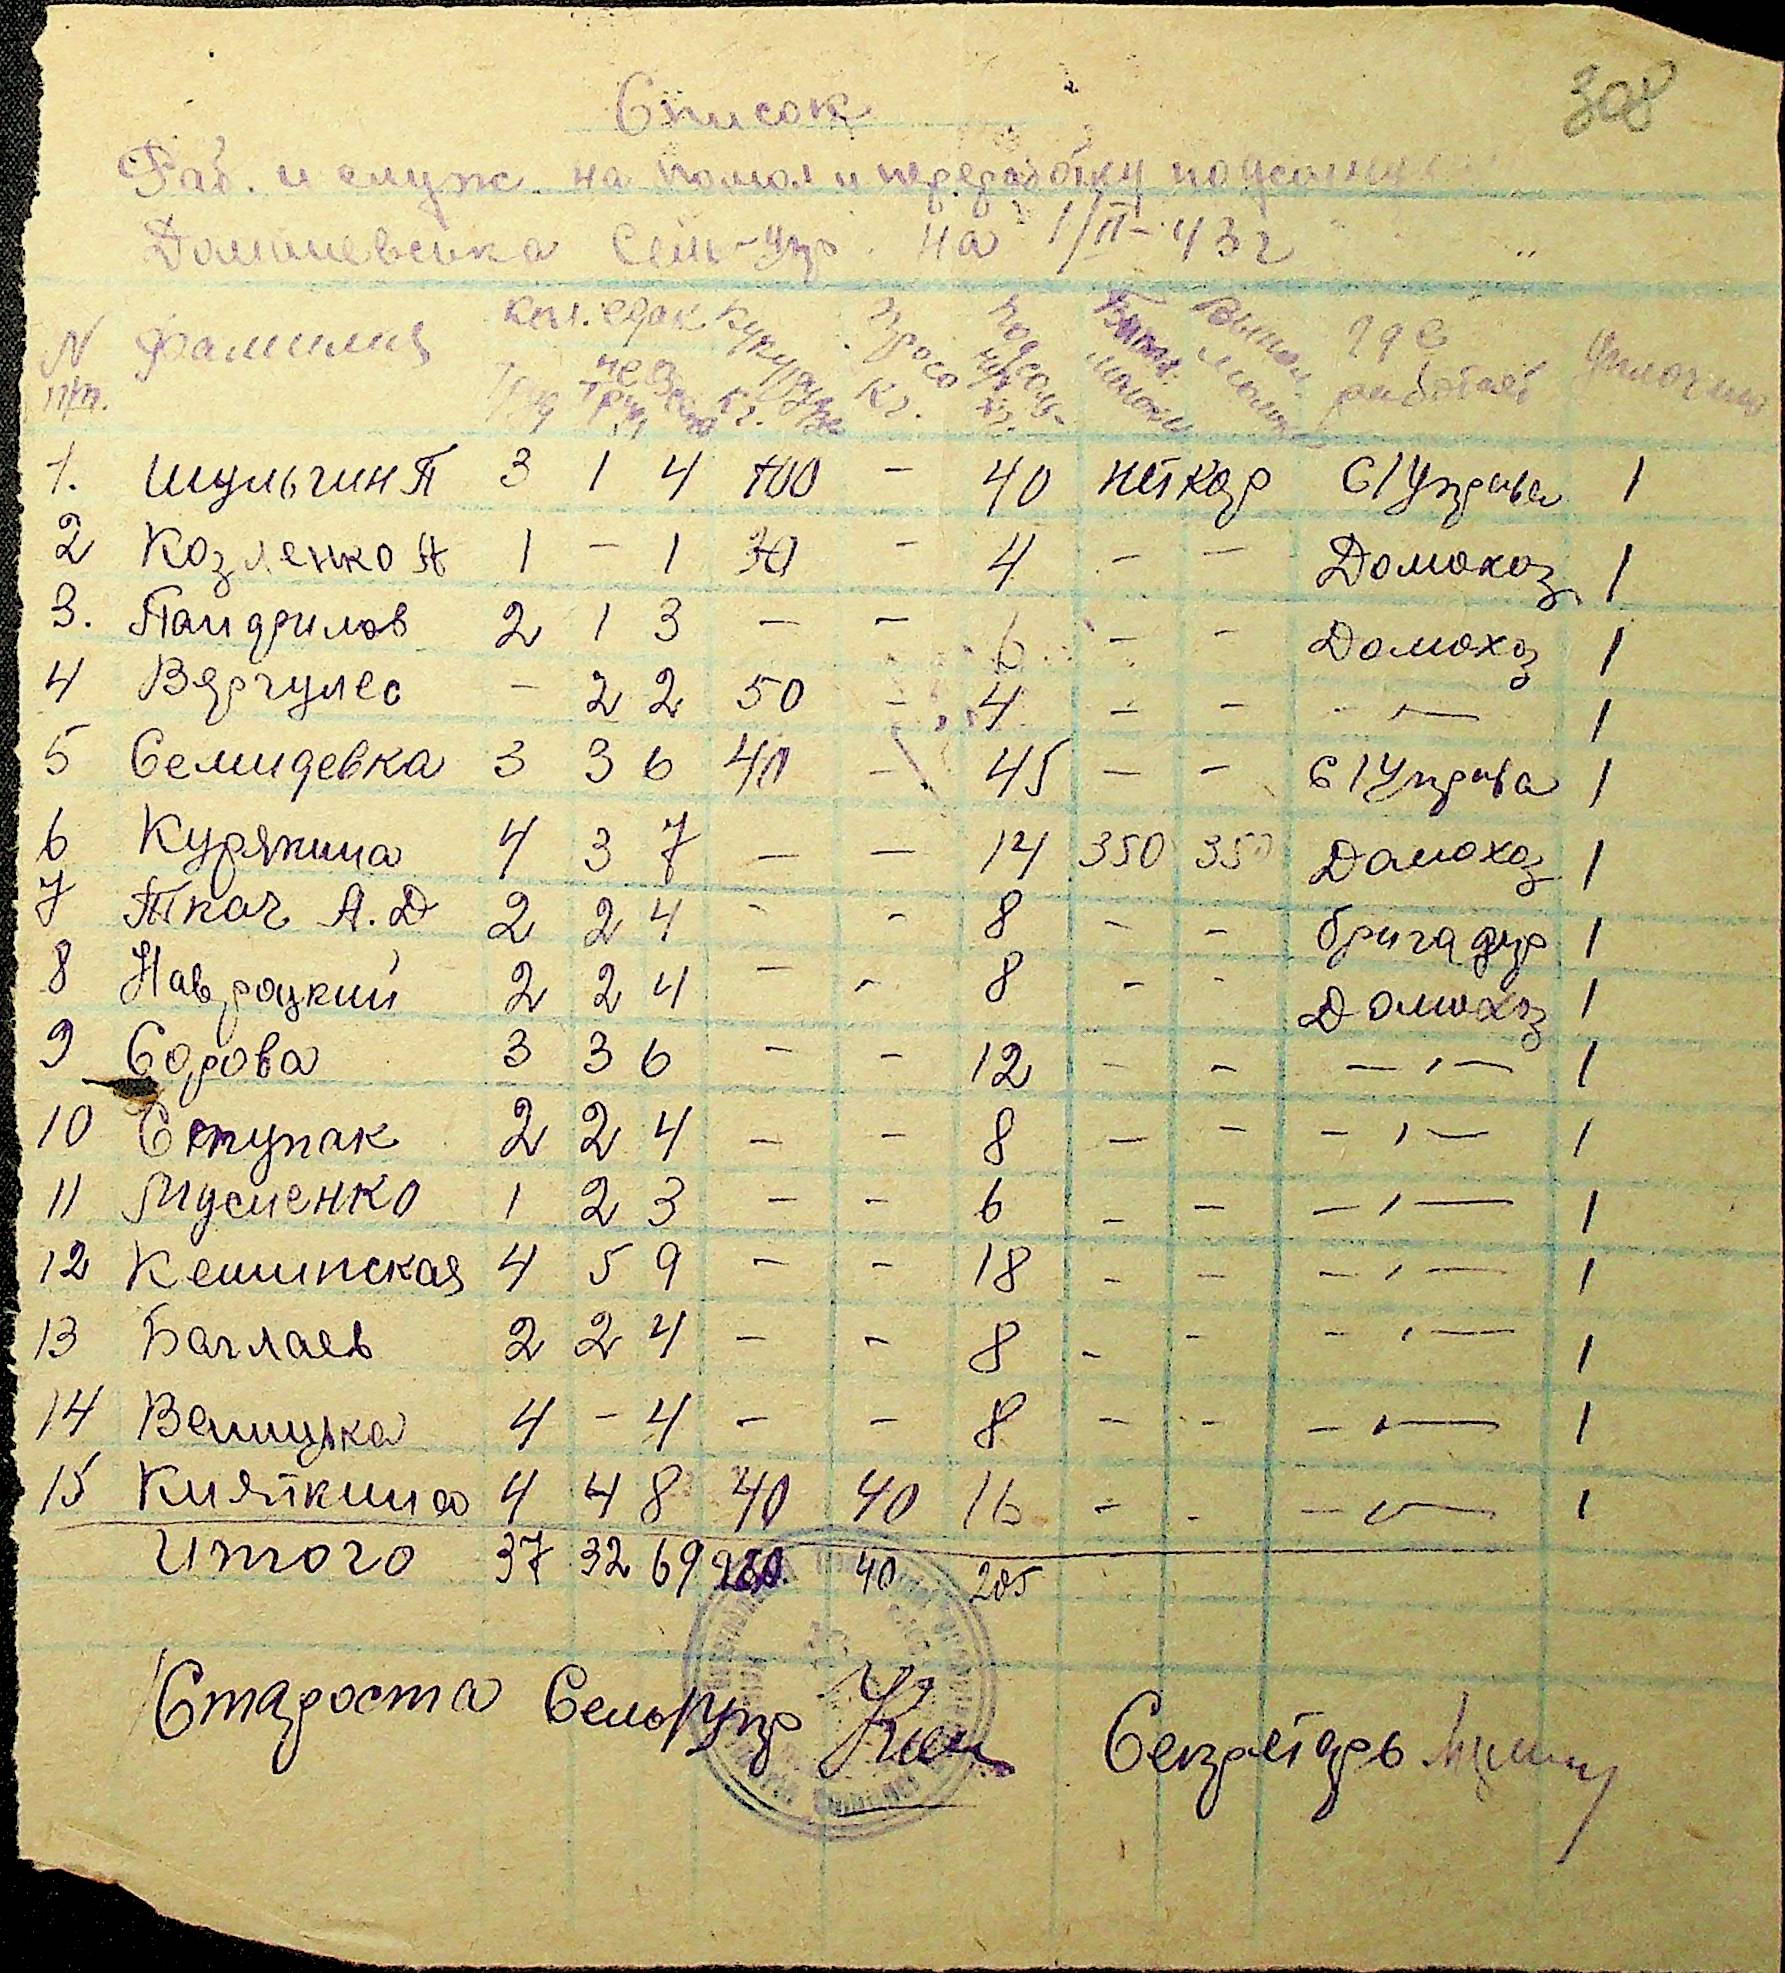 308
Список
Раб. и служ. на помол и переработку подсолнух
Сель-Упр. на 1/II-43г
N п/п. Фамилия Кол. едок Труд нетруд Кукурузы кг. Просо кг. подсолнух кг. молоки где работает
1. Шульгин П 3 1 4 100 - 40 нет кор С/Управа 1
2 Козленко А 1 - 1 30 - 4 - - Домохоз 1
3. Панфилов 2 1 3 - - 6 - - Домохз 1
4 Вергулес - 2 2 50 - 4 - - -"- 1
5 Семидевка 3 3 6 40 - 45 - - С/Управа 1
6 Курякина 4 3 7 - - 14 350 350 Домохоз 1
7 Ткач А.Д 2 2 4 - - 8 - - бригадир 1
8 Навроцкий 2 2 4 - - 8 - - Домохз 1
9 Сорова 3 3 6 - - 12 - - -"- 1
10 Ступак 2 2 4 - - 8 - - -"- 1
11 Мусиенко 1 2 3 - - 6 - - -"- 1
12 Кешинская 4 5 9 - - 18 - - -"- 1
13 Баглаев 2 2 4 - - 8 - - -"- 1
14 4 - 4 - - 8 - - -"- 1
15 Княткина 4 4 8 40 40 16 - - -"- 1
Итого 37 32 69 260. 40 205
Староста Сель/Упр Секретарь